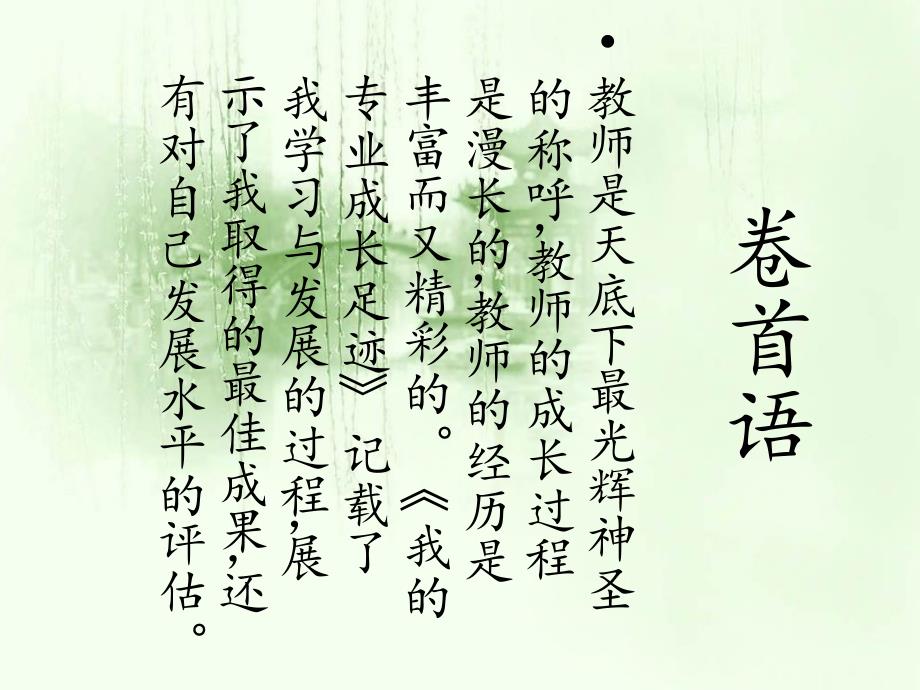 卷首语
• 教师是天底下最光辉神圣
的称呼,教师的成长过程
是漫长的,教师的经历是
丰富而又精彩的。《我的
专业成长足迹》记载了
我学习与发展的过程,展
示了我取得的最佳成果,还
有对自己发展水平的评估。